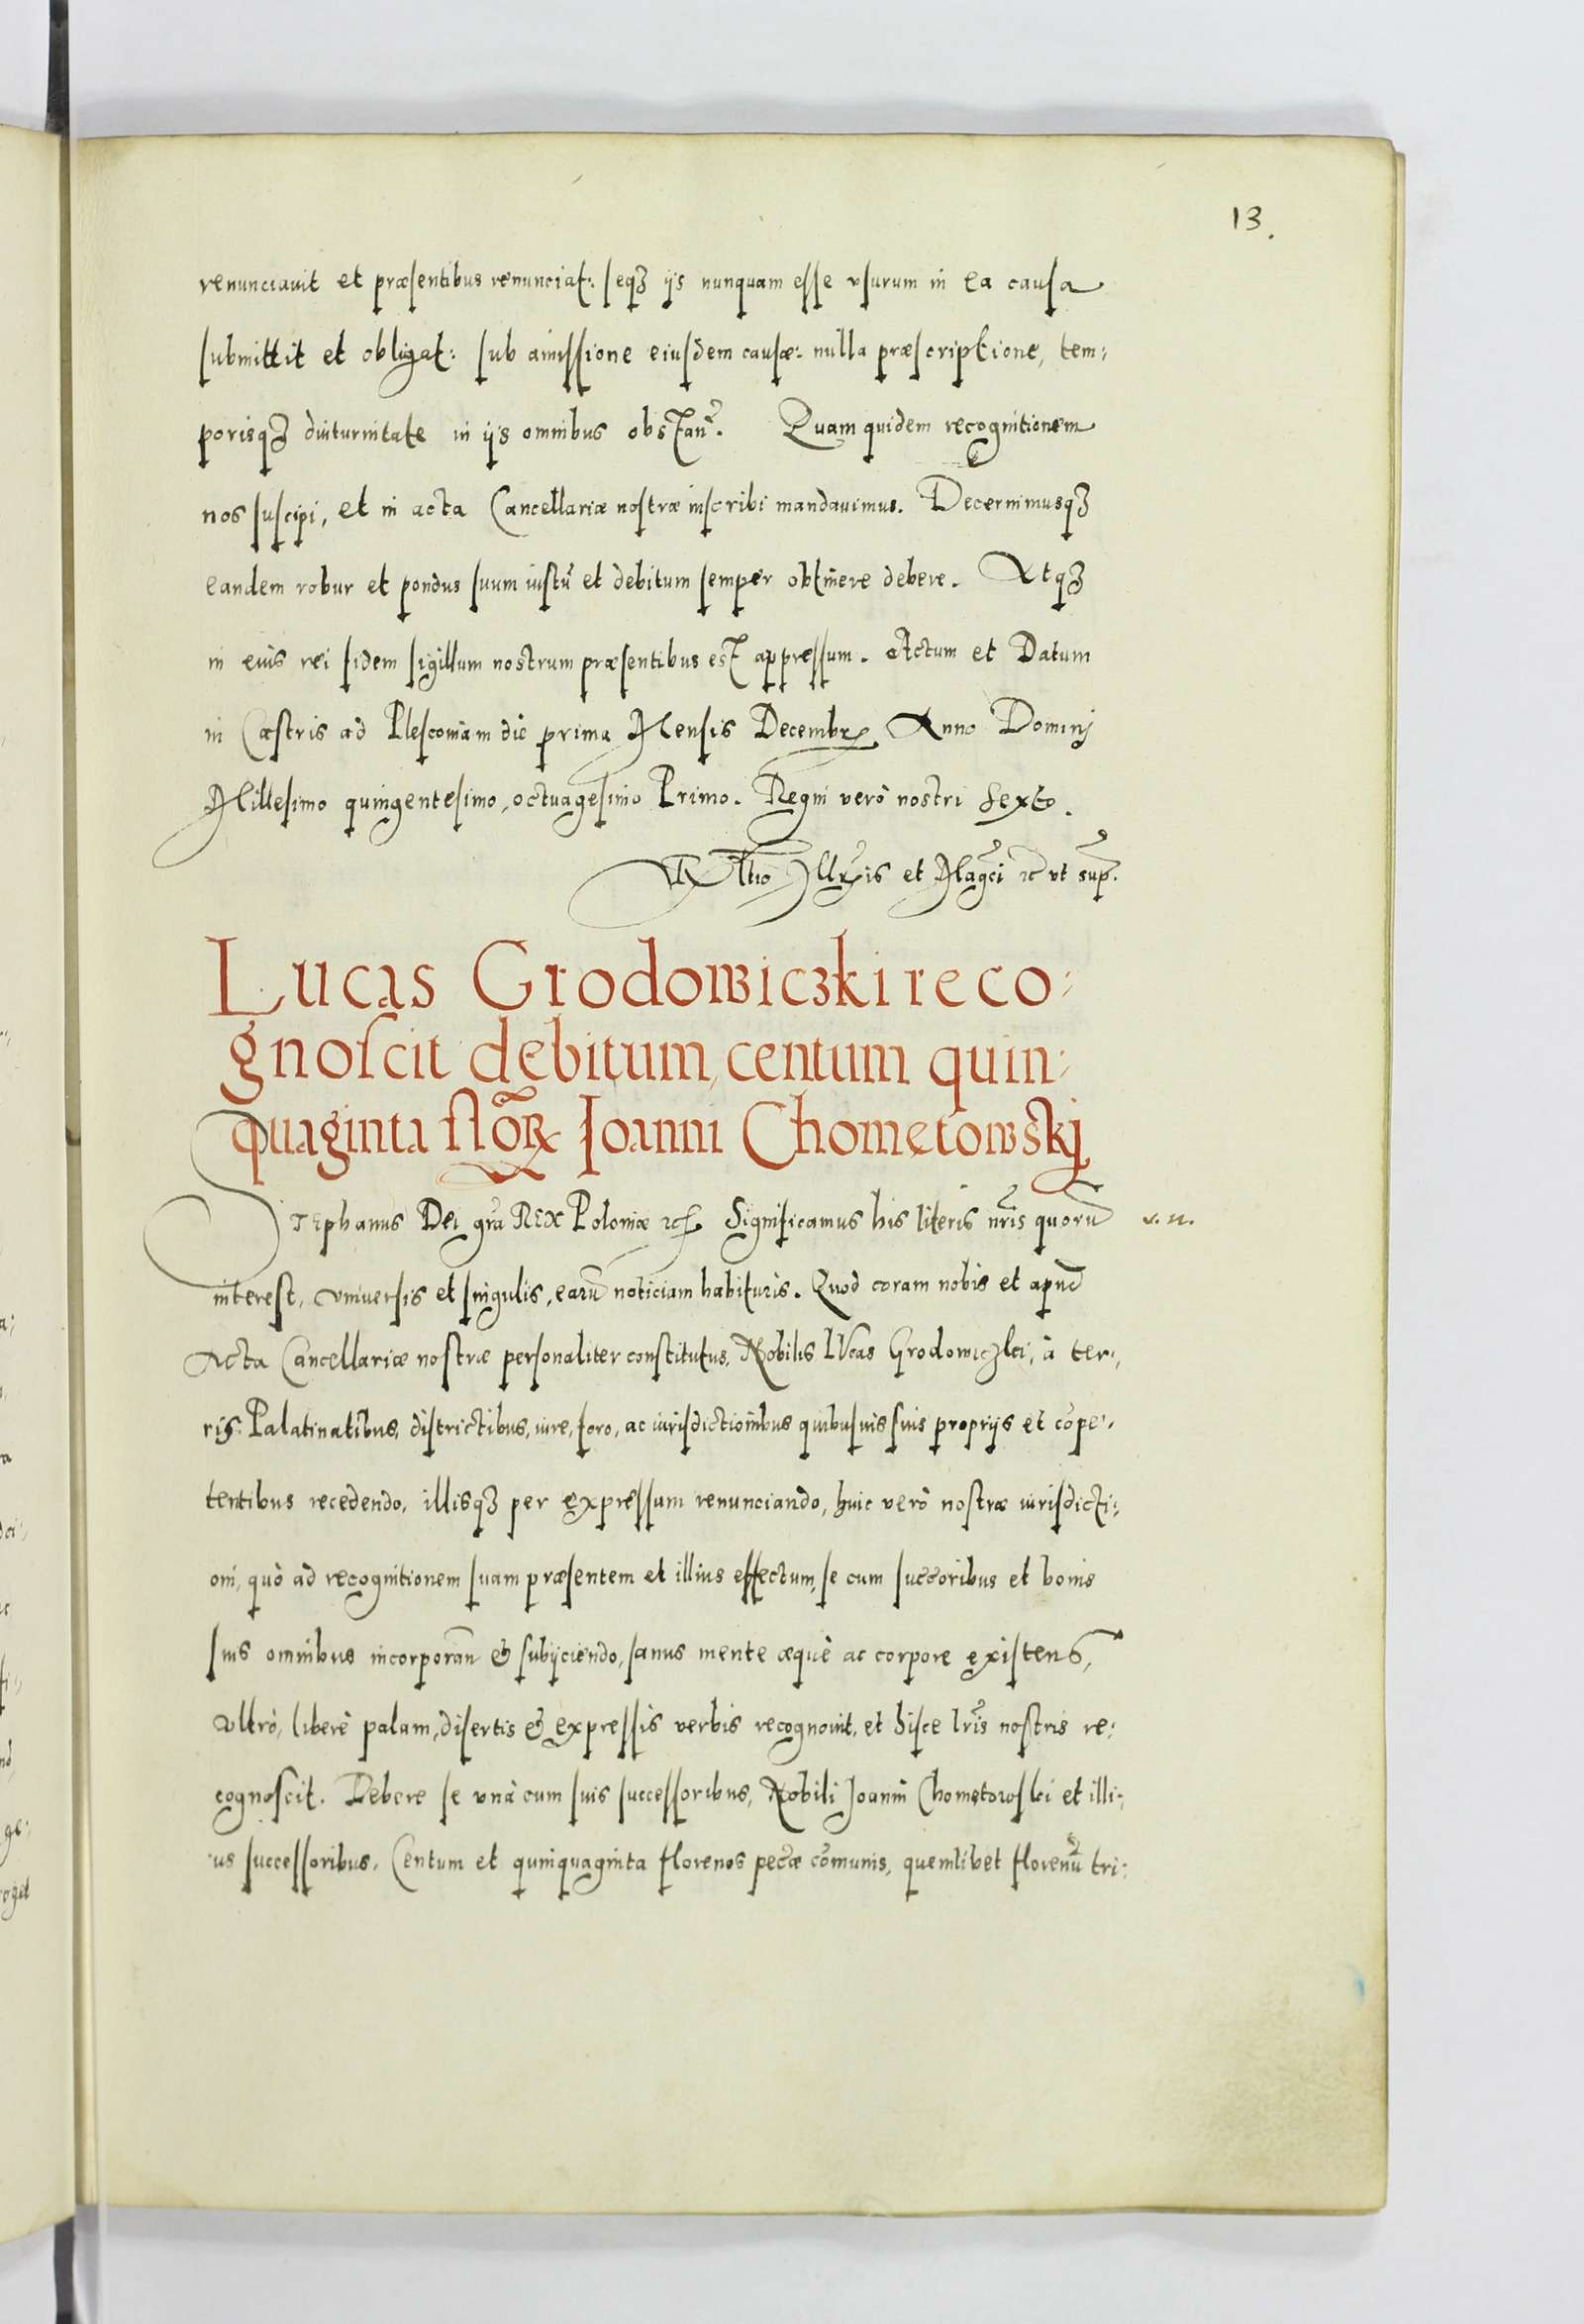 13.
renunciauit et præsentibus renunciat: seqȝ ijs nunquam esse vsurum in ea causa
submittit et obligat: sub amissione eiusdem causæ: nulla præscriptione, tem:
porisqȝ diuturnitate in ijs omnibus obstañ. Quam quidem recognitionem
nos suscipi, et in acta Cancellariæ nostræ inscribi mandauimus. Decernimusqȝ
eandem robur et pondus suum iustũ et debitum semper obtinere debere. Atqȝ
in eius rei fidem sigillum nostrum præsentibus est appressum. Actum et Datum
in Castris ad Plescouiam die prima Mensis Decembrꝭ Anno Dominj
Millesimo quingentesimo, octuagesimo Primo. Regni verò nostri Sexto.
Rltio Illrꝭis et Magci ꝛc vt sup.
Lucas Grodowiczki reco:
gnoscit debitum, centum quin:
quaginta flõrꝝ Ioanni Chometowskj
Stephanus Dei gra Rex Poloniæ ꝛc Significamus his literis nris quorũ v. n.
interest, vniuersis et singulis, earũ noticiam habituris. Quod coram nobis et apud
Acta Cancellariæ nostræ personaliter constitutus, Nobilis LVcas Grodowiczki, à ter:
ris Palatinatibus, districtibus, iure, foro, ac iurisdictionibus quibusuis suis proprijs et cõpe:
tentibus recedendo, illisqȝ per expressum renunciando, huic verò nostræ iurisdicti:
oni, quò ad recognitionem suam præsentem et illius effectum, se cum succoribus et bonis
suis omnibus incorporañ & subijciendo, sanus mente æquè ac corpore existens,
vltrò, liberè palam, disertis & expressis verbis recognouit, et hisce lris nostris re:
cognoscit. Debere se vnà cum suis successoribus, Nobili Joanni Chometowski et illi:
us successoribus, Centum et quinquaginta florenos pecæ cõmunis, quemlibet florenũ tri: